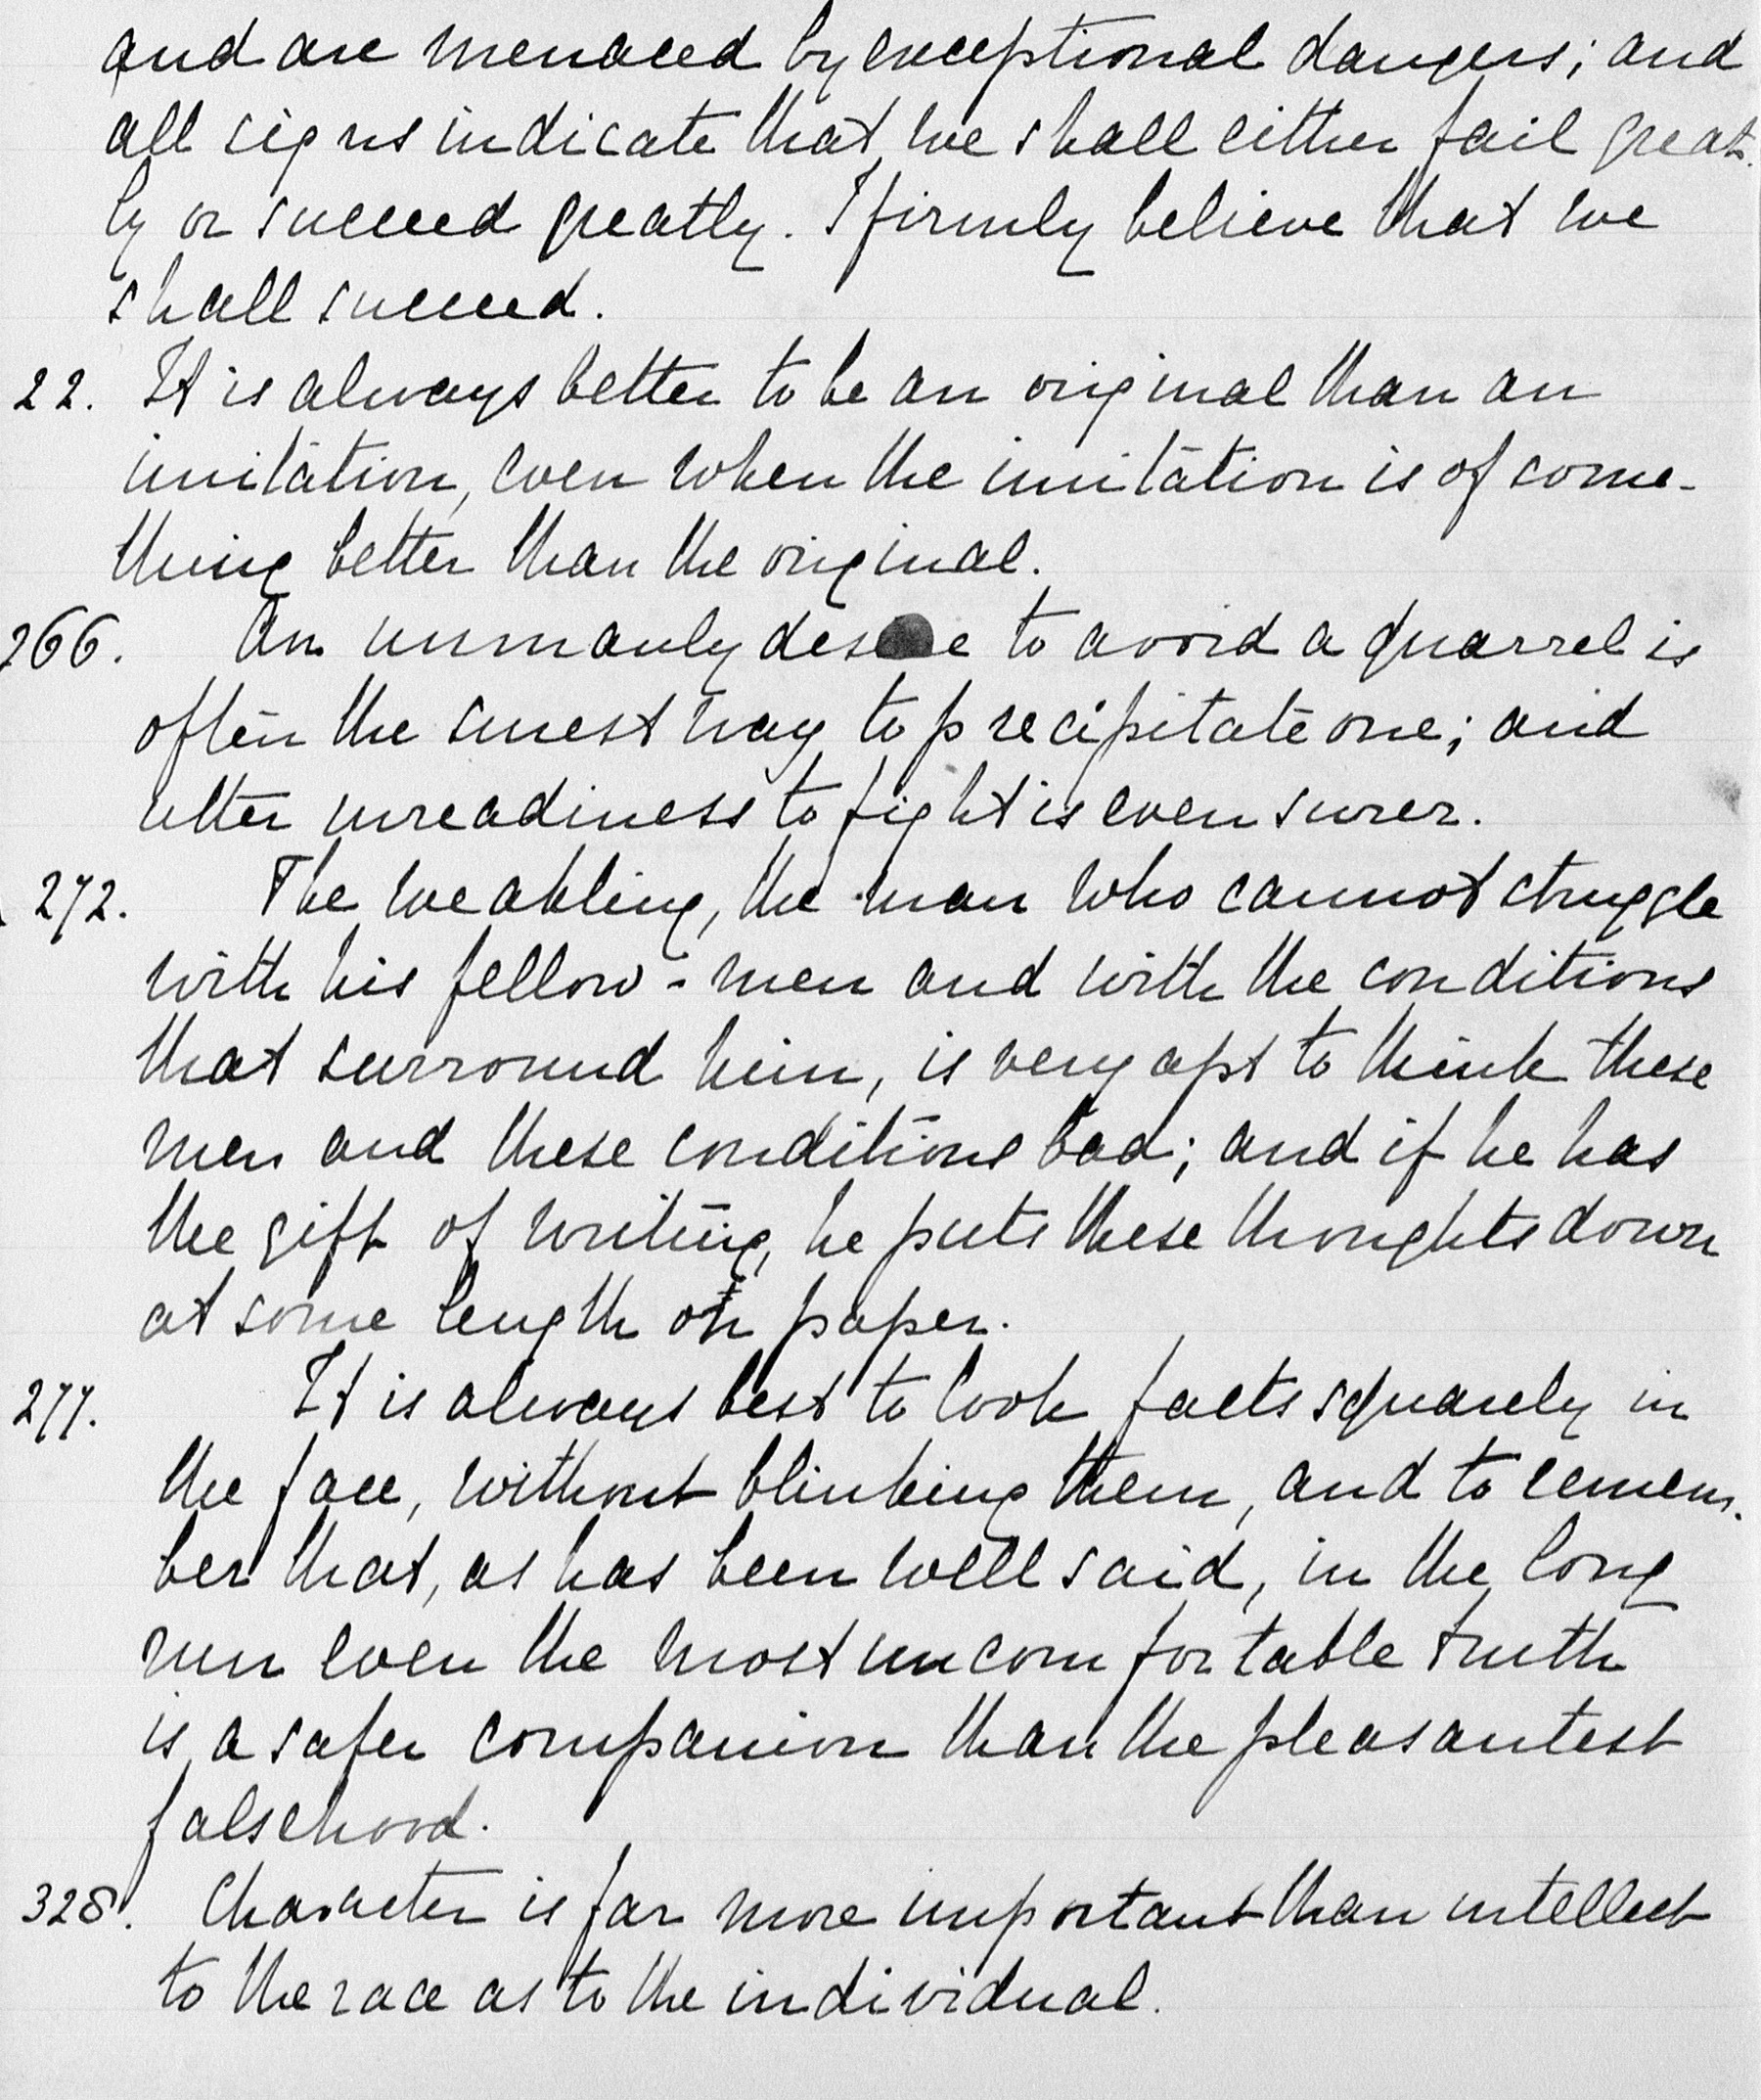 and are menaced by exceptional dangers; and
all signs indicate that we shall either fail great-
ly or succeed greatly. I firmly believe that we
shall succeed.
22. It is always better to be an original than an
imitation, even when the imitation is of some-
thing better than the original.
266. An unmanly desire to avoid a quarrel is
often the surest way to precipitate one; and
utter unreadiness to fight is even surer.
272. The weakling, the man who cannot struggle
with his fellow-men and with the conditions
that surround him, is very apt to think these
men and these conditions bad; and if he has
the gift of writing, he puts these thoughts down
at some length on paper.
277. It is always best to look facts squarely in
the face, without blinking them, and to remem-
ber that, as has been well said, in the long
run even the most uncomfortable truth
is a safer companion than the pleasantest
falsehood.
328. Character is far more important than intellect
to the race as to the individual.